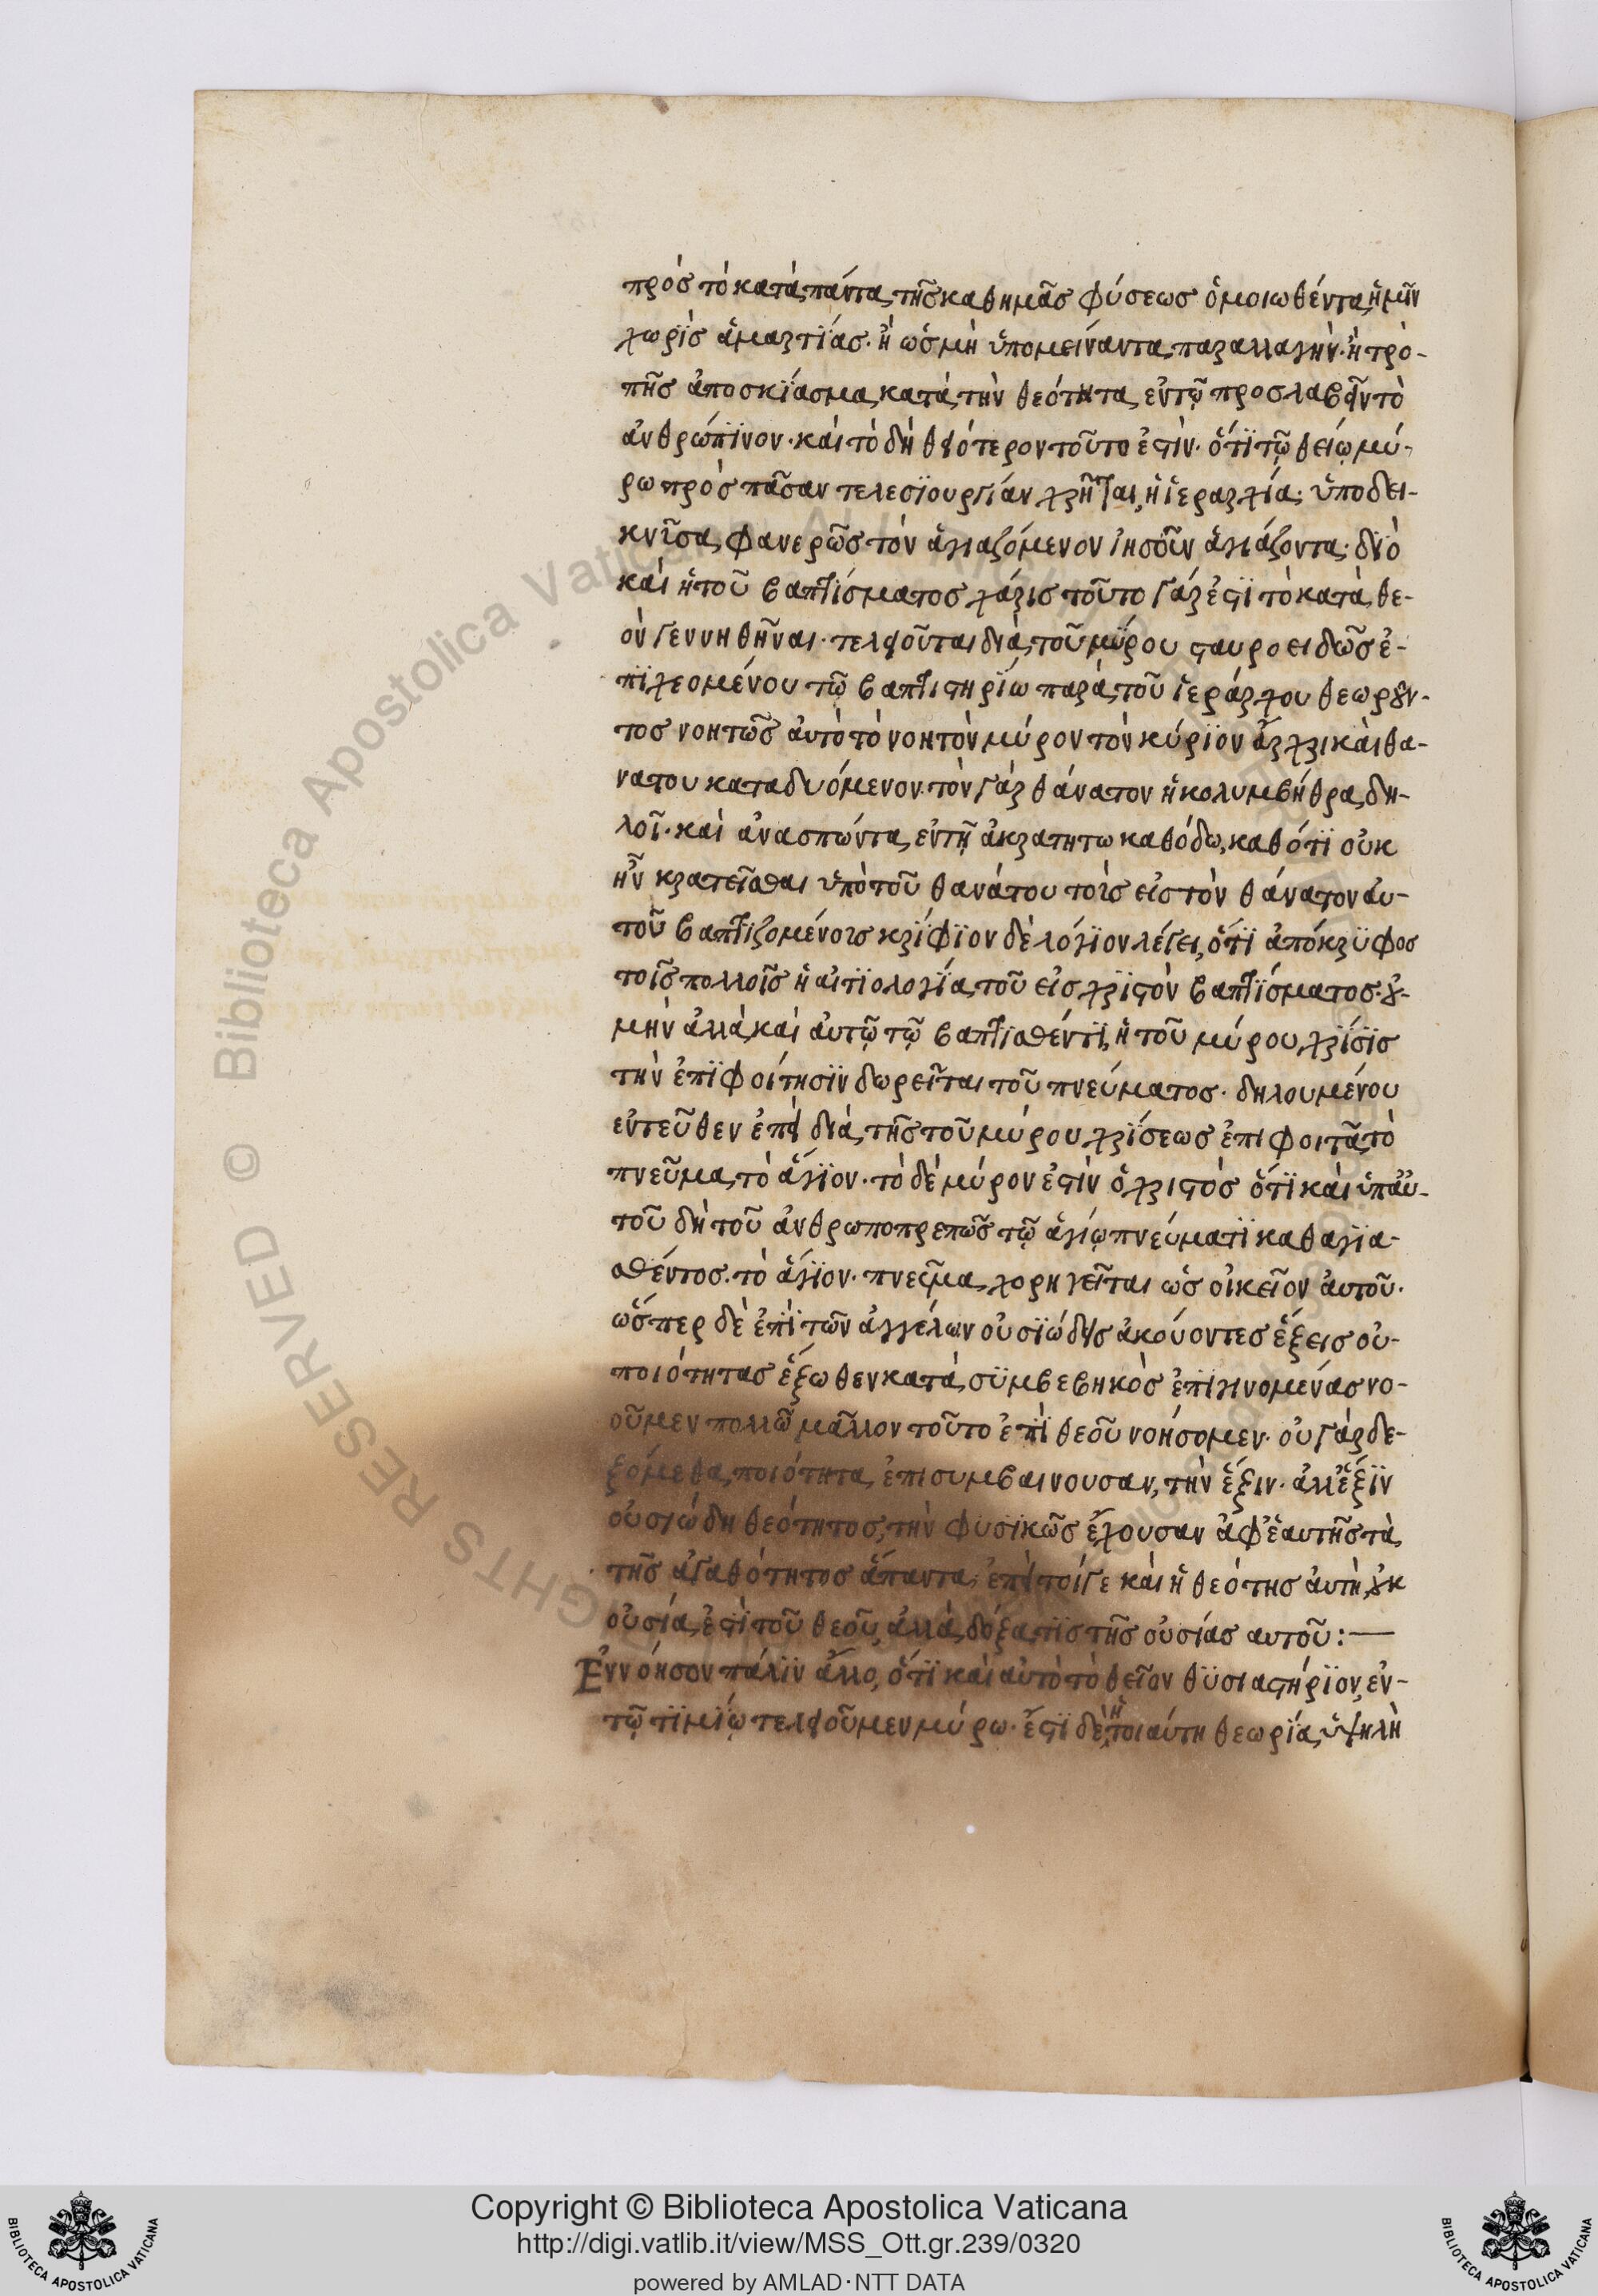 πρὸς τὸ κατὰ πάντα τῆς καθημᾶς φύσεως ὁμοιωθέντα ἡμῖν
χωρὶς ἁμαρτίας· ἢ ὡς μὴ ὑπομείναντα παραλλαγὴν· ἢ τρο-
πῆς ἀποσκίασμα κατὰ τὴν θεότητα ἐν τῷ προσλαβεῖν τὸ
ἀνθρώπινον· καὶ τὸ δὴ θειότερον τοῦτο ἐστὶν· ὅτι τῷ θείῳ μύ-
ρω πρὸς πᾶσαν τελεσϊουργίαν χρῆται, ἡ ἱεραρχία; ὑποδει-
κνῦσα, φανερῶς τὸν ἁγιαζόμενον ἰησοῦν ἁγιάζοντα; διὸ
καὶ ἡ τοῦ βαπτίσματος χάρις τοῦτο γάρ ἐστὶ τὸ κατὰ θε-
ὸν γεννηθῆναι· τελειοῦται διὰ τοῦ μύρου σταυροειδῶς ἐ-
πιχεομένου τῷ βαπτιστηρίω παρὰ τοῦ ἱεράρχου θεωροῦν-
τος νοητῶς αὐτὸ τὸ νοητὸν μύρον τὸν κύριον ἄχρι καὶ θα-
νατου καταδυόμενον· τὸν γὰρ θάνατον ἡ κολυμβήθρα δη-
λοῖ· καὶ ἀνασπώντα, ἐν τῇ ἀκρατητω καθόδω, καθότι οὐκ
ἦν κρατεῖσθαι ὑπὸ τοῦ θανάτου τοὶς εἰς τὸν θάνατον αὐ-
τοῦ βαπτιζομένοις κρύφιον δὲ λόγιον λέγει, ὅτι ἀπόκρυφος
τοῖς πολλοῖς ἡ αἰτιολογία, τοῦ εἰς χριστὸν βαπτίσματος· οὐ
μὴν ἀλλὰ καὶ αὐτῷ τῷ βαπτισθέντι, ἡ τοῦ μύρου χρίσις
τὴν ἐπιφοίτησιν δωρεῖται τοῦ πνεύματος· δηλουμένου
ἐντεῦθεν ἐπεὶ διὰ τῆς τοῦ μύρου χρίσεως ἐπιφοιτᾶ τὸ
πνεῦμα, τὸ ἅγιον· τὸ δὲ μύρον ἐστὶν ὁ χριστὸς ὅτι καὶ ὑπ' αὐ-
τοῦ δὴ τοῦ ἀνθρωποπρεπῶς τῷ ἁγίῳ πνεύματι καθαγια-
σθέντος· τὸ ἅγιον· πνεῦμα, χορηγεῖται ὡς οἰκεῖον αὐτοῦ·
ὥσπερ δὲ ἐπὶ τῶν ἀγγέλων οὐσιώδεις ἀκούοντες ἕξεις οὐ-
ποιότητας ἔξωθεν κατὰ συμβεβηκὸς ἐπιγινομένας νο-
οῦμεν πολλῶ μᾶλλον τοῦτο ἐπὶ θεοῦ νοήσομεν· οὐ γὰρ δε-
ξόμεθα, ποιότητα ἐπισυμβαινουσαν, τὴν ἕξιν· ἀλλ' ἕξιν
οὐσιώδη θεότητος, τὴν φυσικῶς ἔχουσαν ἀφ' ἑαυτῆς τὰ
τῆς ἀγαθότητος ἅπαντα; ἐπεὶ τοί γε καὶ ἡ θεότης αὐτὴ, οὐκ
οὐσία, ἐστὶ τοῦ θεοῦ, ἀλλὰ δόξα, τὶς τῆς οὐσίας αυτοῦ:—
Ἐννόησον πάλιν ἄλλο, ὅτι καὶ αὐτὸ τὸ θεῖον θυσιαστήριον, ἐν-
τῷ τιμίῳ τελειοῦμεν μύρω· ἔστι δὲ, ἡ τοιαύτη θεωρία, ὑψηλὴ
Copyright © Biblioteca Apostolica Vaticana
http://digi.vatlib.it/view/MSS_Ott.gr.239/0320
powered by AMLAD·NTT DATA